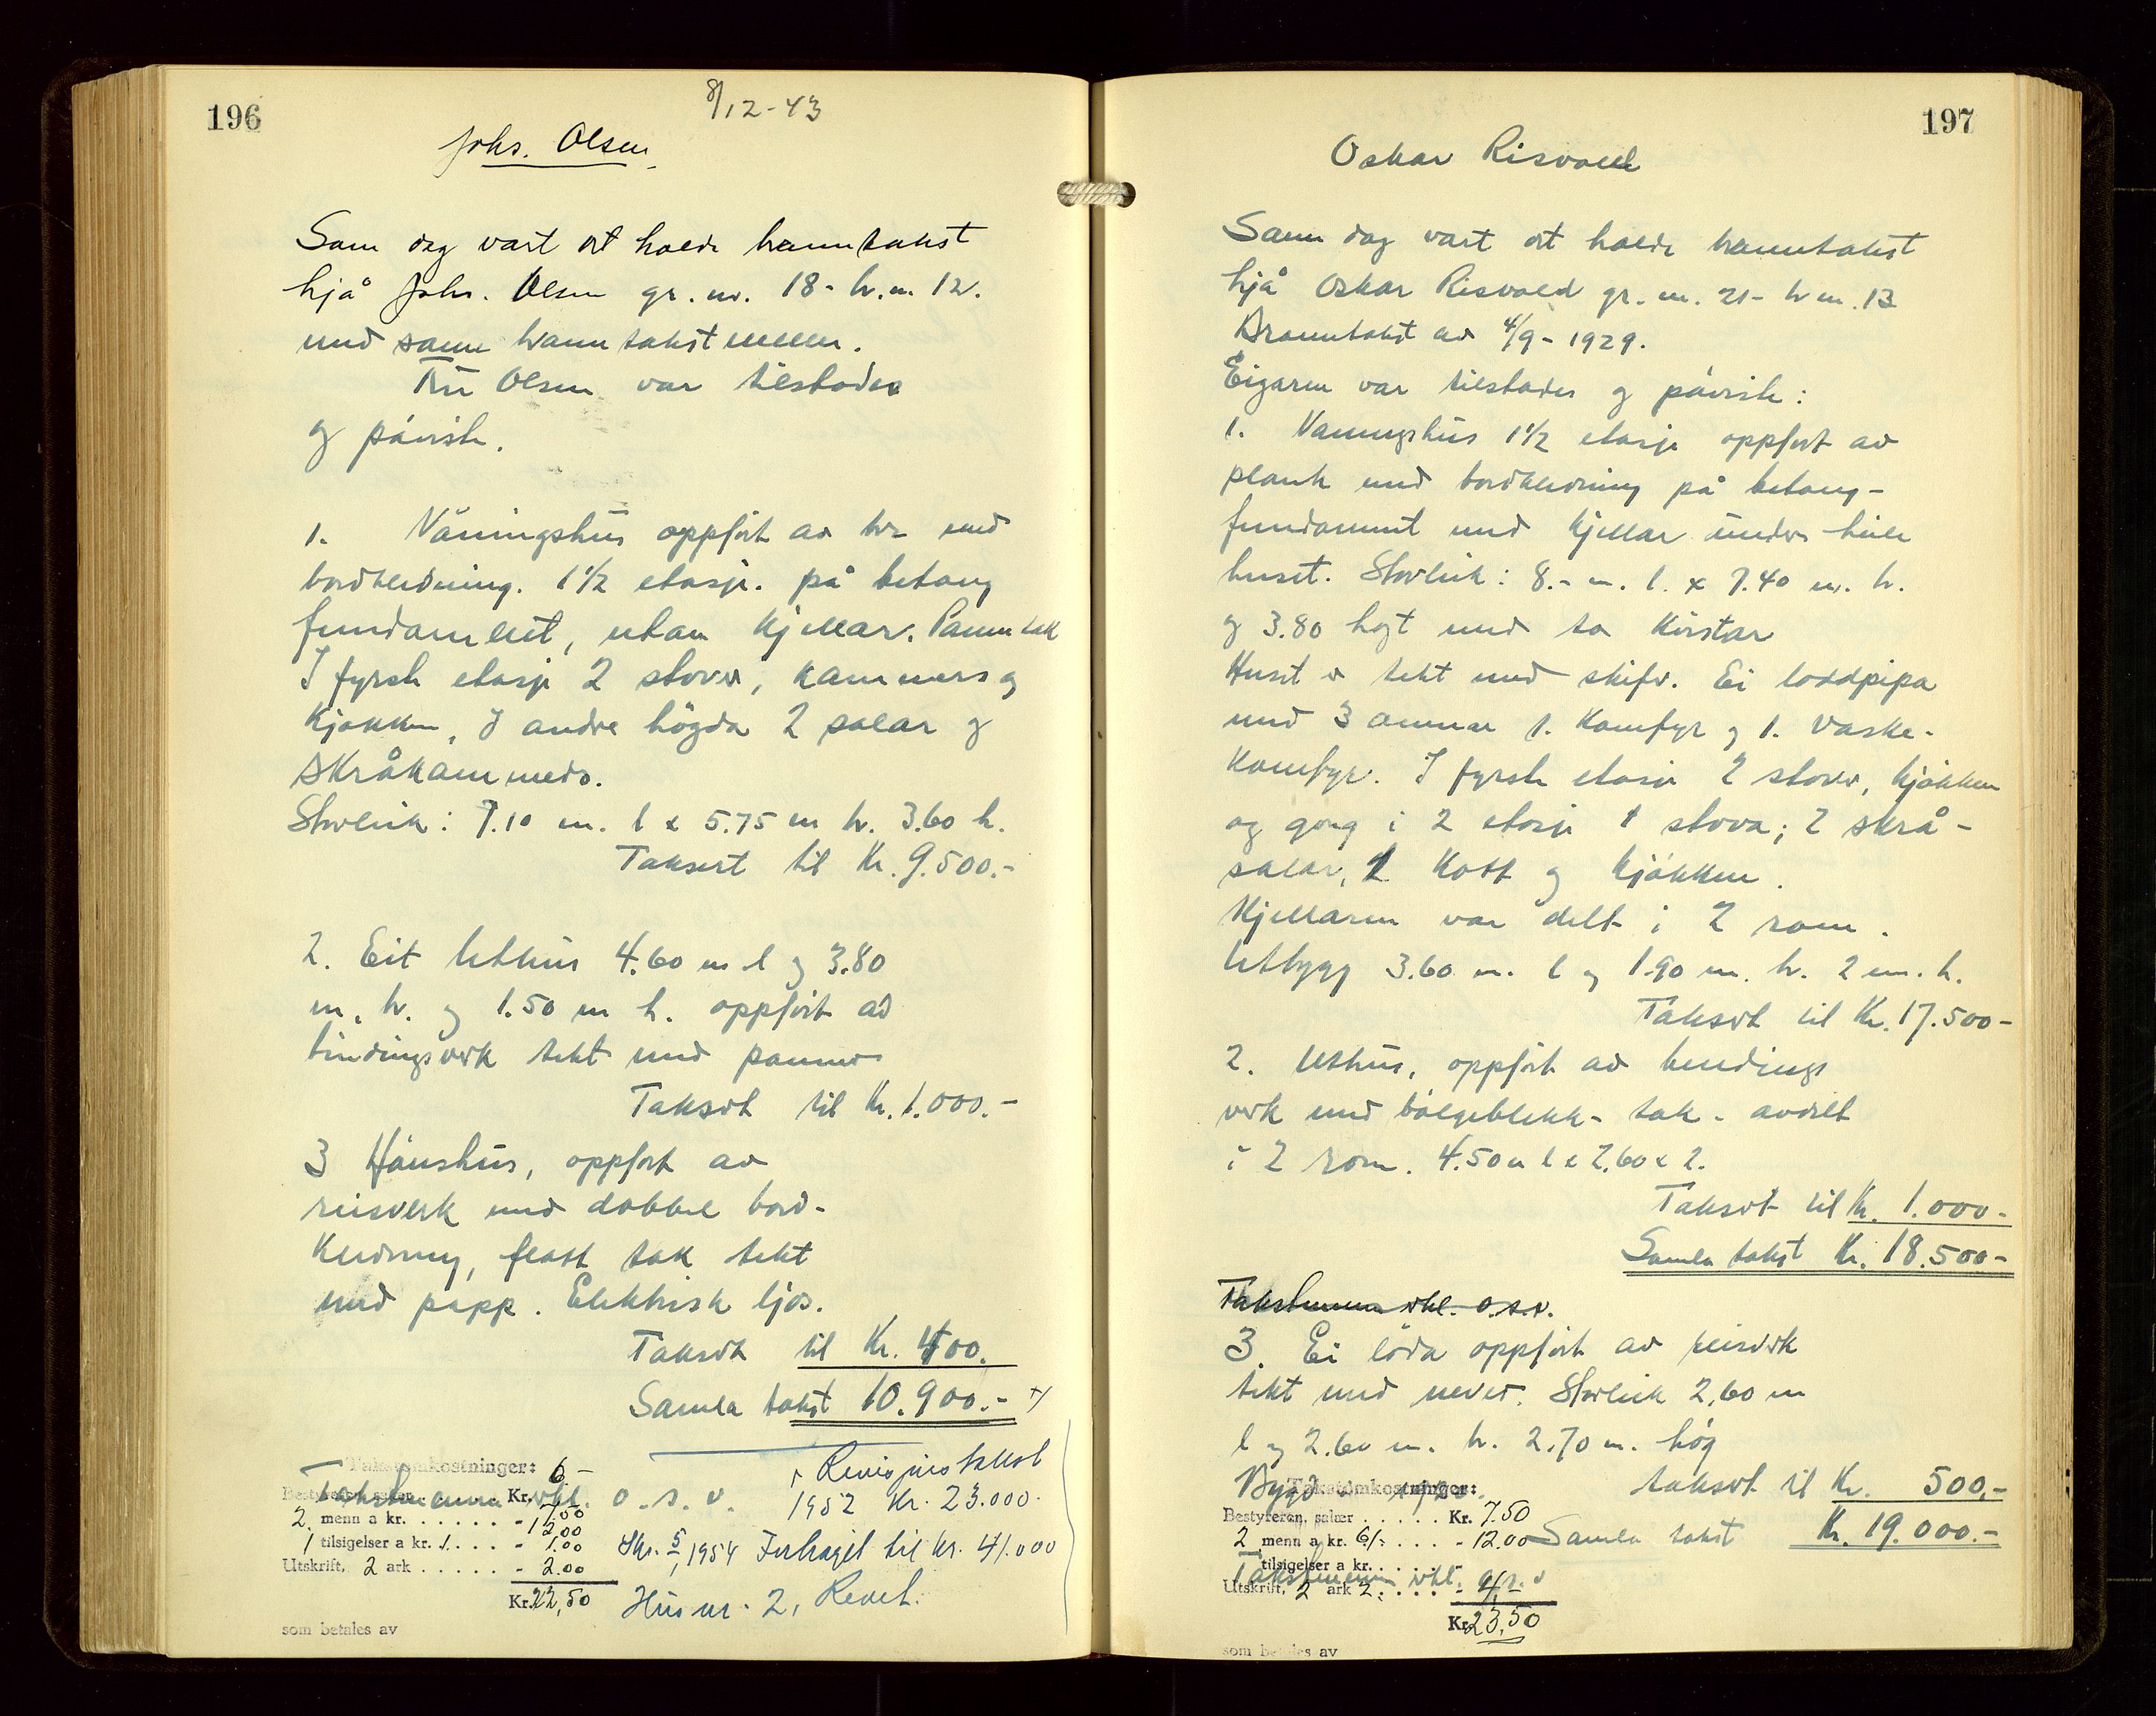 196
8/12-43
Johs. Olsen
Sam dag vart det halde branntakst
hjå Johs. Olsen gr. nr. 18 - br. n. 12.
med same branntakstmenn.
Olsen var tilstades
og påviste.
1. Våningshus oppført av tre med
bordkledning. 1 1/2 etasje. på betong
fundament, utan kjellar. Panne tak
I fyrste etasje 2 stover, kammers og
kjøkken, I andre högda 2 salar og
skråkammers.
Storleik: 7.10 m. l x 5.75 m br. 3.60 h.
Taksert til Kr. 9.500.-
2. Eit uthus 4.60 m l og 3.80
m. br. og 1.50 m h. oppført av
bindingsverk tekt med panner
Taksert til Kr. 1.000.-
3 Hönshus, oppført av
reisverk med dobbel bord-
kledning, flatt tak tekt
med papp. Elektrisk ljos.
Taksert til Kr. 400.
Samla takst 10.900.-
Takstomkostninger: 6-
Takstmennene vbl. o.s.v.
Bestyreren, salær Kr. 7.50
2 menn a kr. ..... - 12.00
1 tilsigelser a kr. 1. ... - 1.00
Utskrift, 2 ark ..... - 2.00
Kr. 22,50
som betales av
Revisjons takst
1952 Kr. 23.000.
Skr. 5/1 1954 Forhøget til kr. 41.000
Hus nr. 2, Revet.
197
Oskar Risvold
Same dag vart det halde branntakst
hjå Oskar Risvold gr. n. 21 - br n. 13
Branntakst av 4/9 - 1929.
Eigaren var tilstades og påviste:
1. Vaningshus 1 1/2 etasje oppført av
plank med bordkledning på betong-
fundament med kjellar under heile
huset. Storleik: 8.- m. l. x 7.40 m. br.
og 3.80 høgt med to kvistar
Huset er tekt med skifer. Ei loddpipa
med 3 omnar 1. Komfyr og 1. vaske-
komfyr. I fyrste etasje 2 stover, kjøkken
og gong i 2 etasje 1 stova; 2 skrå-
salar, 1 kott og kjøkken.
Kjellaren var delt i 2 rom.
Utbygg 3.60 m. l og 1.90 m. br. 2 m. h.
Taksert til Kr. 17.500-
2. Uthus, oppført av bindings
verk med bølgeblekk- tak - avdelt
i 2 rom. 4.50 m l x 2.60 x 2.
Taksert til Kr. 1.000-
Samla takst Kr. 18.500-
Takstmenn vbl. o.s.v.
3. Ei löda oppført av reisverk
tekt med never. Storleik 2,60 m
l og 2.60 m. br. 2.70 m. høg
Bygd
taksert til Kr. 500,-
Samla takst Kr. 19.000.-
Takstomkostninger:
Bestyreren, salær ..... Kr. 7.50
2 menn a kr. 6/- ... - 12.00
tilsigelser a kr. .....
Takstmenn vbl. o.s.v
Utskrift, 2 ark 2. .... - 4,
Kr. 23,50
som betales av